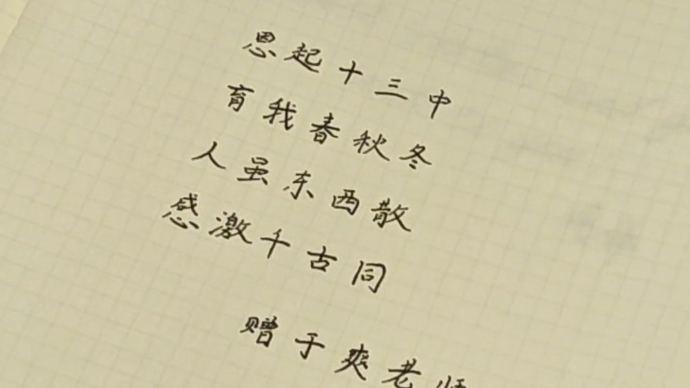 恩起十三中
育我春秋冬
人虽东西散
感激千古同
赠于爽老师